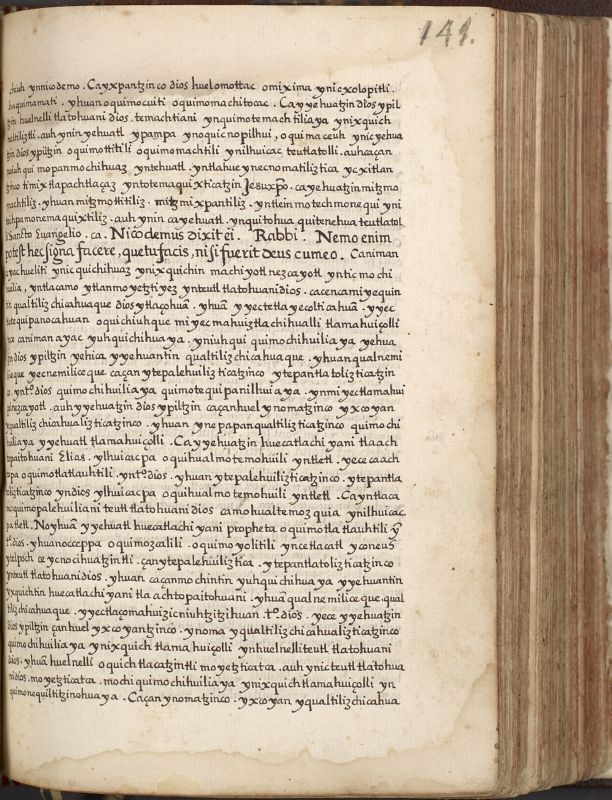 141.
chiuh ynnicodemo. Cayxpantzinco dios huelomottac omixima ynicxolopitli.
haquimamati. yhuan oquimocuiti oquimomachitocac. Cayyehuatzin dios ypil
tzin huelnelli tlatohuani dios. temachtiani ynquimotemachtiliaya ynixquich
neltiliztli. auh ynin yehuatl ypampa ynoquicnopilhui, oquimaceuh ynicyehua
tzin dios ypiltzin oquimottitili oquimomachtili ynilhuicac teutlatolli. auhcaçan
noiuh qui mopanmochihuaz yntehuatl. yntlahue ynecnomatiliztica ycxitlan
tzinco timixtlapachtlaçaz yntotemaquixticatzin Jesuxpo. cayehuatzin mitzmo
machtiliz. yhuan mitzmottitiliz. mitzmixpantiliz. yntleinmotechmonequi yni
techpamonemaquixtiliz. auh ynin cayehuatl. ynquitohua quitenehua teutlatol
li Sancto Euangelio. ca. Nicodemus dixit ei. Rabbi. Nemo enim
potest hec signa facere, quetufacis, nisi fuerit deus cumeo. Caniman
ayac hueliti ynicquichihuaz ynixquichin machiyotl nezcayotl ynticmochi
huilia, yntlacamo ytlanmoyetzticyez ynteutl tlatohuani dios. cacencamiyequin
in qualtiliz chicahuaque dios ytlaçohuā. yhuā yyectetlayecolticahuā. yyec
tlatequipanocahuan oquichiuhque miyec mahuiztlachihualli tlamahuiçolli
yece caniman ayac yuhquichihuaya. yniuhqui quimochihuiliaya yehua
tzin dios ypiltzin yehica yyehuantin qualtilizchicahuaque. yhuan qualnemi
lieque yecnemiliceque caçan ytepalehuiliz ticatzinco ytepantlatoliz ticatzin
co. ynto dios quimochihuiliaya quimotequipanilhuiaya. ynmiyectlamahui
çolnezcayotl. auh yyehuatzin dios ypiltzin caçanhuel ynomatzinco yxcoyan
yqualtilizchicahualizticatzinco. yhuan ynepapanqualtilizticatzinco quimochi
huiliaya yyehuatl tlamahuiçolli. Cayyehuatzin huecatlachiyani tlaach
topaitohuani Elias. ylhuicacpa oquihualmotemohuili yntletl. yece caach
topa oquimotlatlauhtili. ynto dios. yhuan ytepalehuilizticatzinco. ytepantla
tolizticatzinco yndios ylhuicacpa oquihualmotemohuili yntletl. Cayntlaca
moquimopalehuiliani teutl tlatohuani dios camohualtemoz quia ynilhuicac
patletl. Noyhuā yyehuatl huecatlachiyani propheta oquimotlatlauhtili yn
to dios. yhuanocceppa oquimozcalili. oquimoyolitili yncetlacatl yconeuh
ytelpoch ce ycnocihuatzintli. çanytepalehuiliztica. ytepantlatolizticatzinco
ynteutl tlatohuani dios. yhuan caçanmochintin yuhquichihuaya yyehuantin
yxquichtin huecatlachiyani tlaachtopaitohuani. yhuā qualnemiliceque. qual
tilizchicahuaque. yyectlaçomahuizicniuhtzitzihuan .to. dios. yece yyehuatzin
dios ypiltzin çanhuel yxcoyantzinco. ynoma yqualtilizchicahualizticatzinco
quimochihuiliaya ynixquich tlamahuiçolli ynhuelnelliteutl tlatohuani
dios. yhuā huelnelli oquichtlacatzintli moyetzticatca. auh ynic teutl tlatohua
ni dios. moyetzticatca. mochi quimochihuiliaya ynixquich tlamahuiçolli yn
quimonequiltitzinohuaya. Caçan ynomatzinco. yxcoyan yqualtilizchicahua